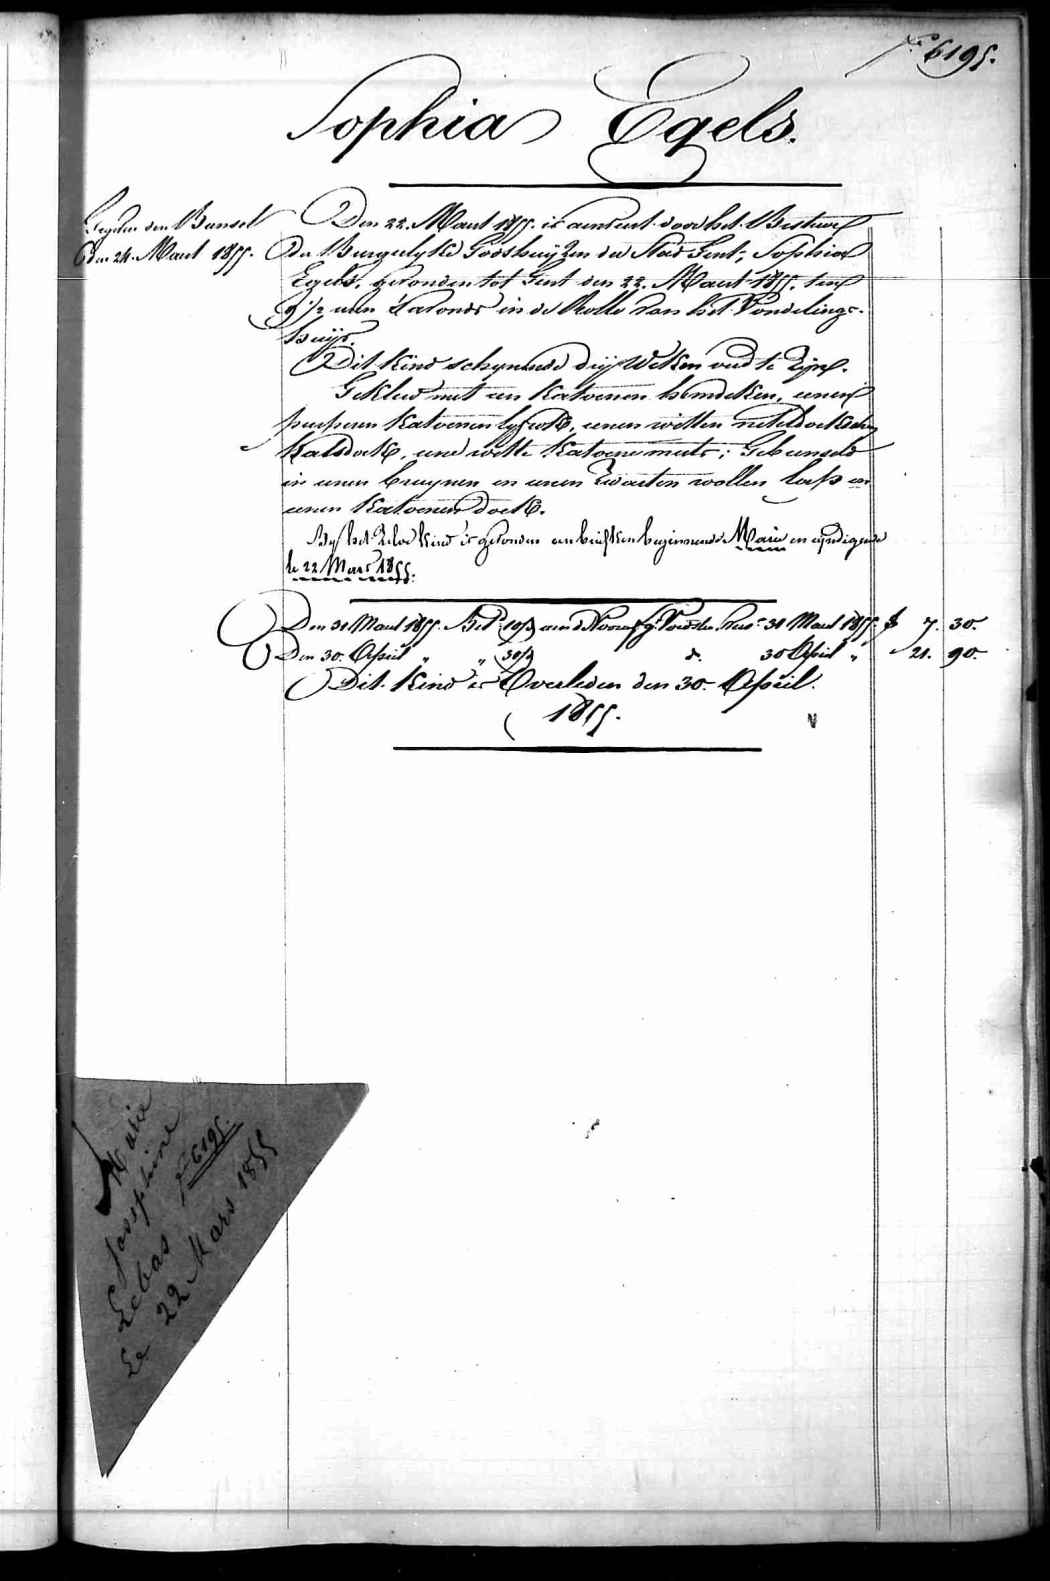 No 6195.
Sophia Egels.
den Bansel
den 24. Maert 1855.
Den 22. Maert 1855. is aenveert door het Bestuer
der Burgerlyke Godshuyzen der Stad Gent, Sophia
Egels, gevonden tot Gent den 22. Maert 1855. ten
9 1/2 uren 's avonds in de Rolle van het Vondelings-
huys.
Dit kind schynende dry Weken oud te Zyn.
Gekleed met een Katoenen hemdeken, eenen
purperen Katoenen lyfrok, eenen witten neteldoekschen
halsdoek, eene witte Katoene muts; Gebunseld
in eenen bruynen en eenen Zwarten wollen lap en
eenen Katoenen doek.
By het Zelve kind is gevonden een briefken beginnende Marie en eyndigende
le 22 Mars 1855.
Den 31 Maert 1855. Bet. 31 Maert 1855. F 7. 30.
Den 30. April " " do. 30 April " " 21. 90.
Dit Kind is Overleden den 30. April.
1855.
Marie
Josephine
Lebas No 6195.
Le 22 Mars 1855